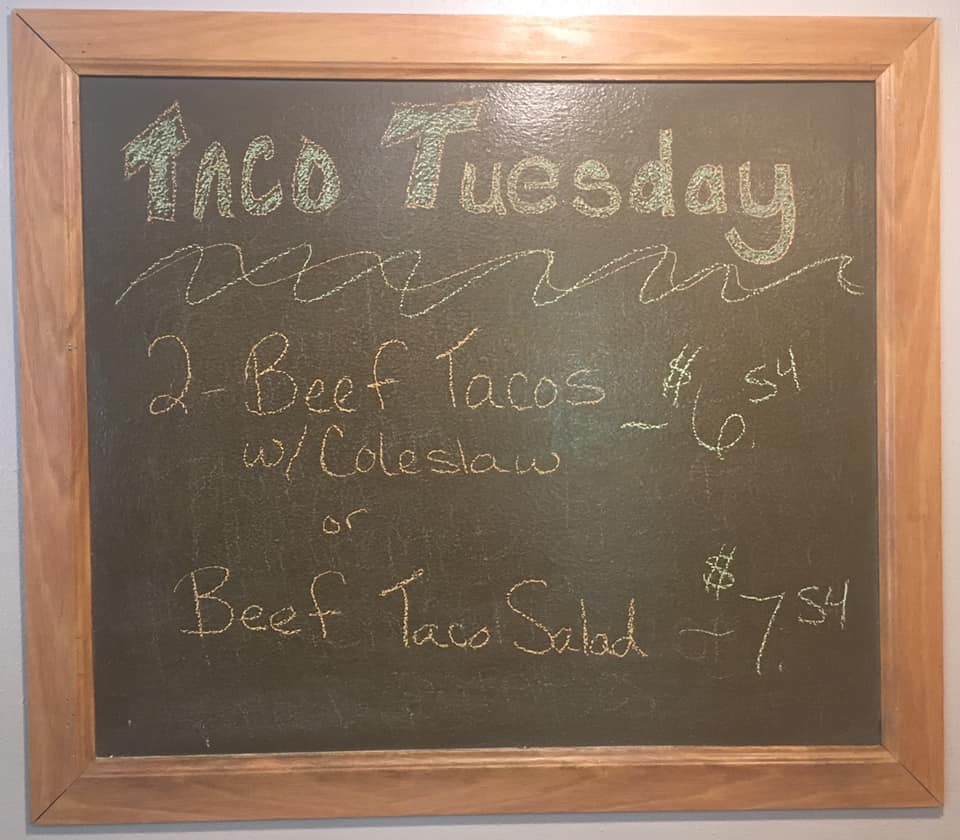 Taco Tuesday
2-Beef Tacos ~ $6.54
w/Coleslaw
or
Beef Taco Salad ~ $7.54